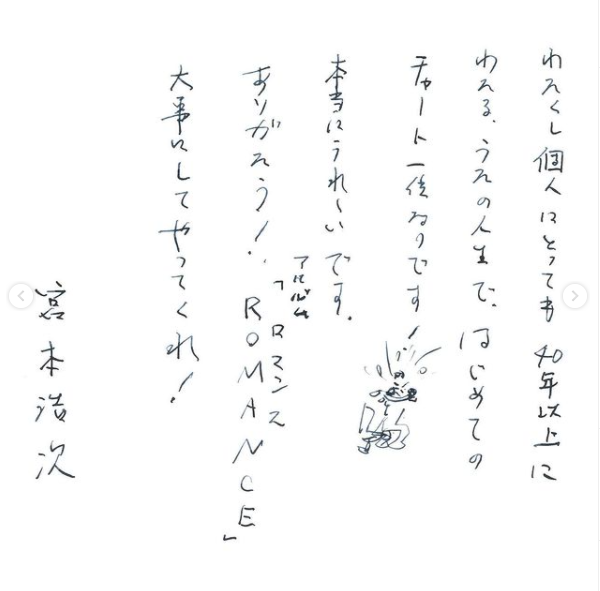 わたくし個人にとっても40年以上に
わたる、うたの人生で、はじめての
チャート一位なのです!
本当にうれしいです。
ありがとう!アルバム「ROMANCE」
ロマンス
大事にしてやってくれ!
宮本浩次